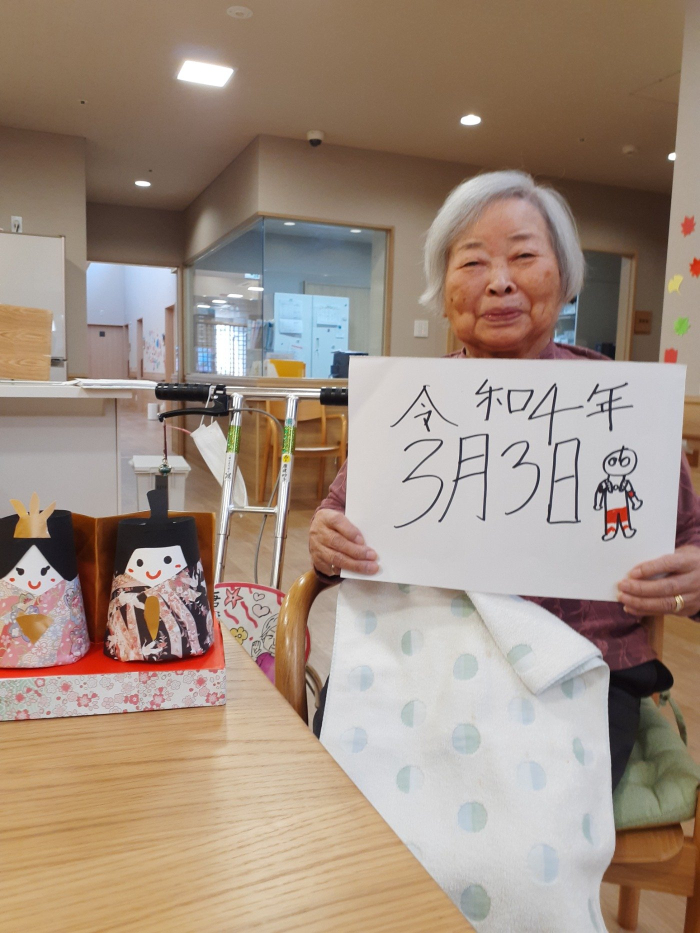 令和4年
3月3日